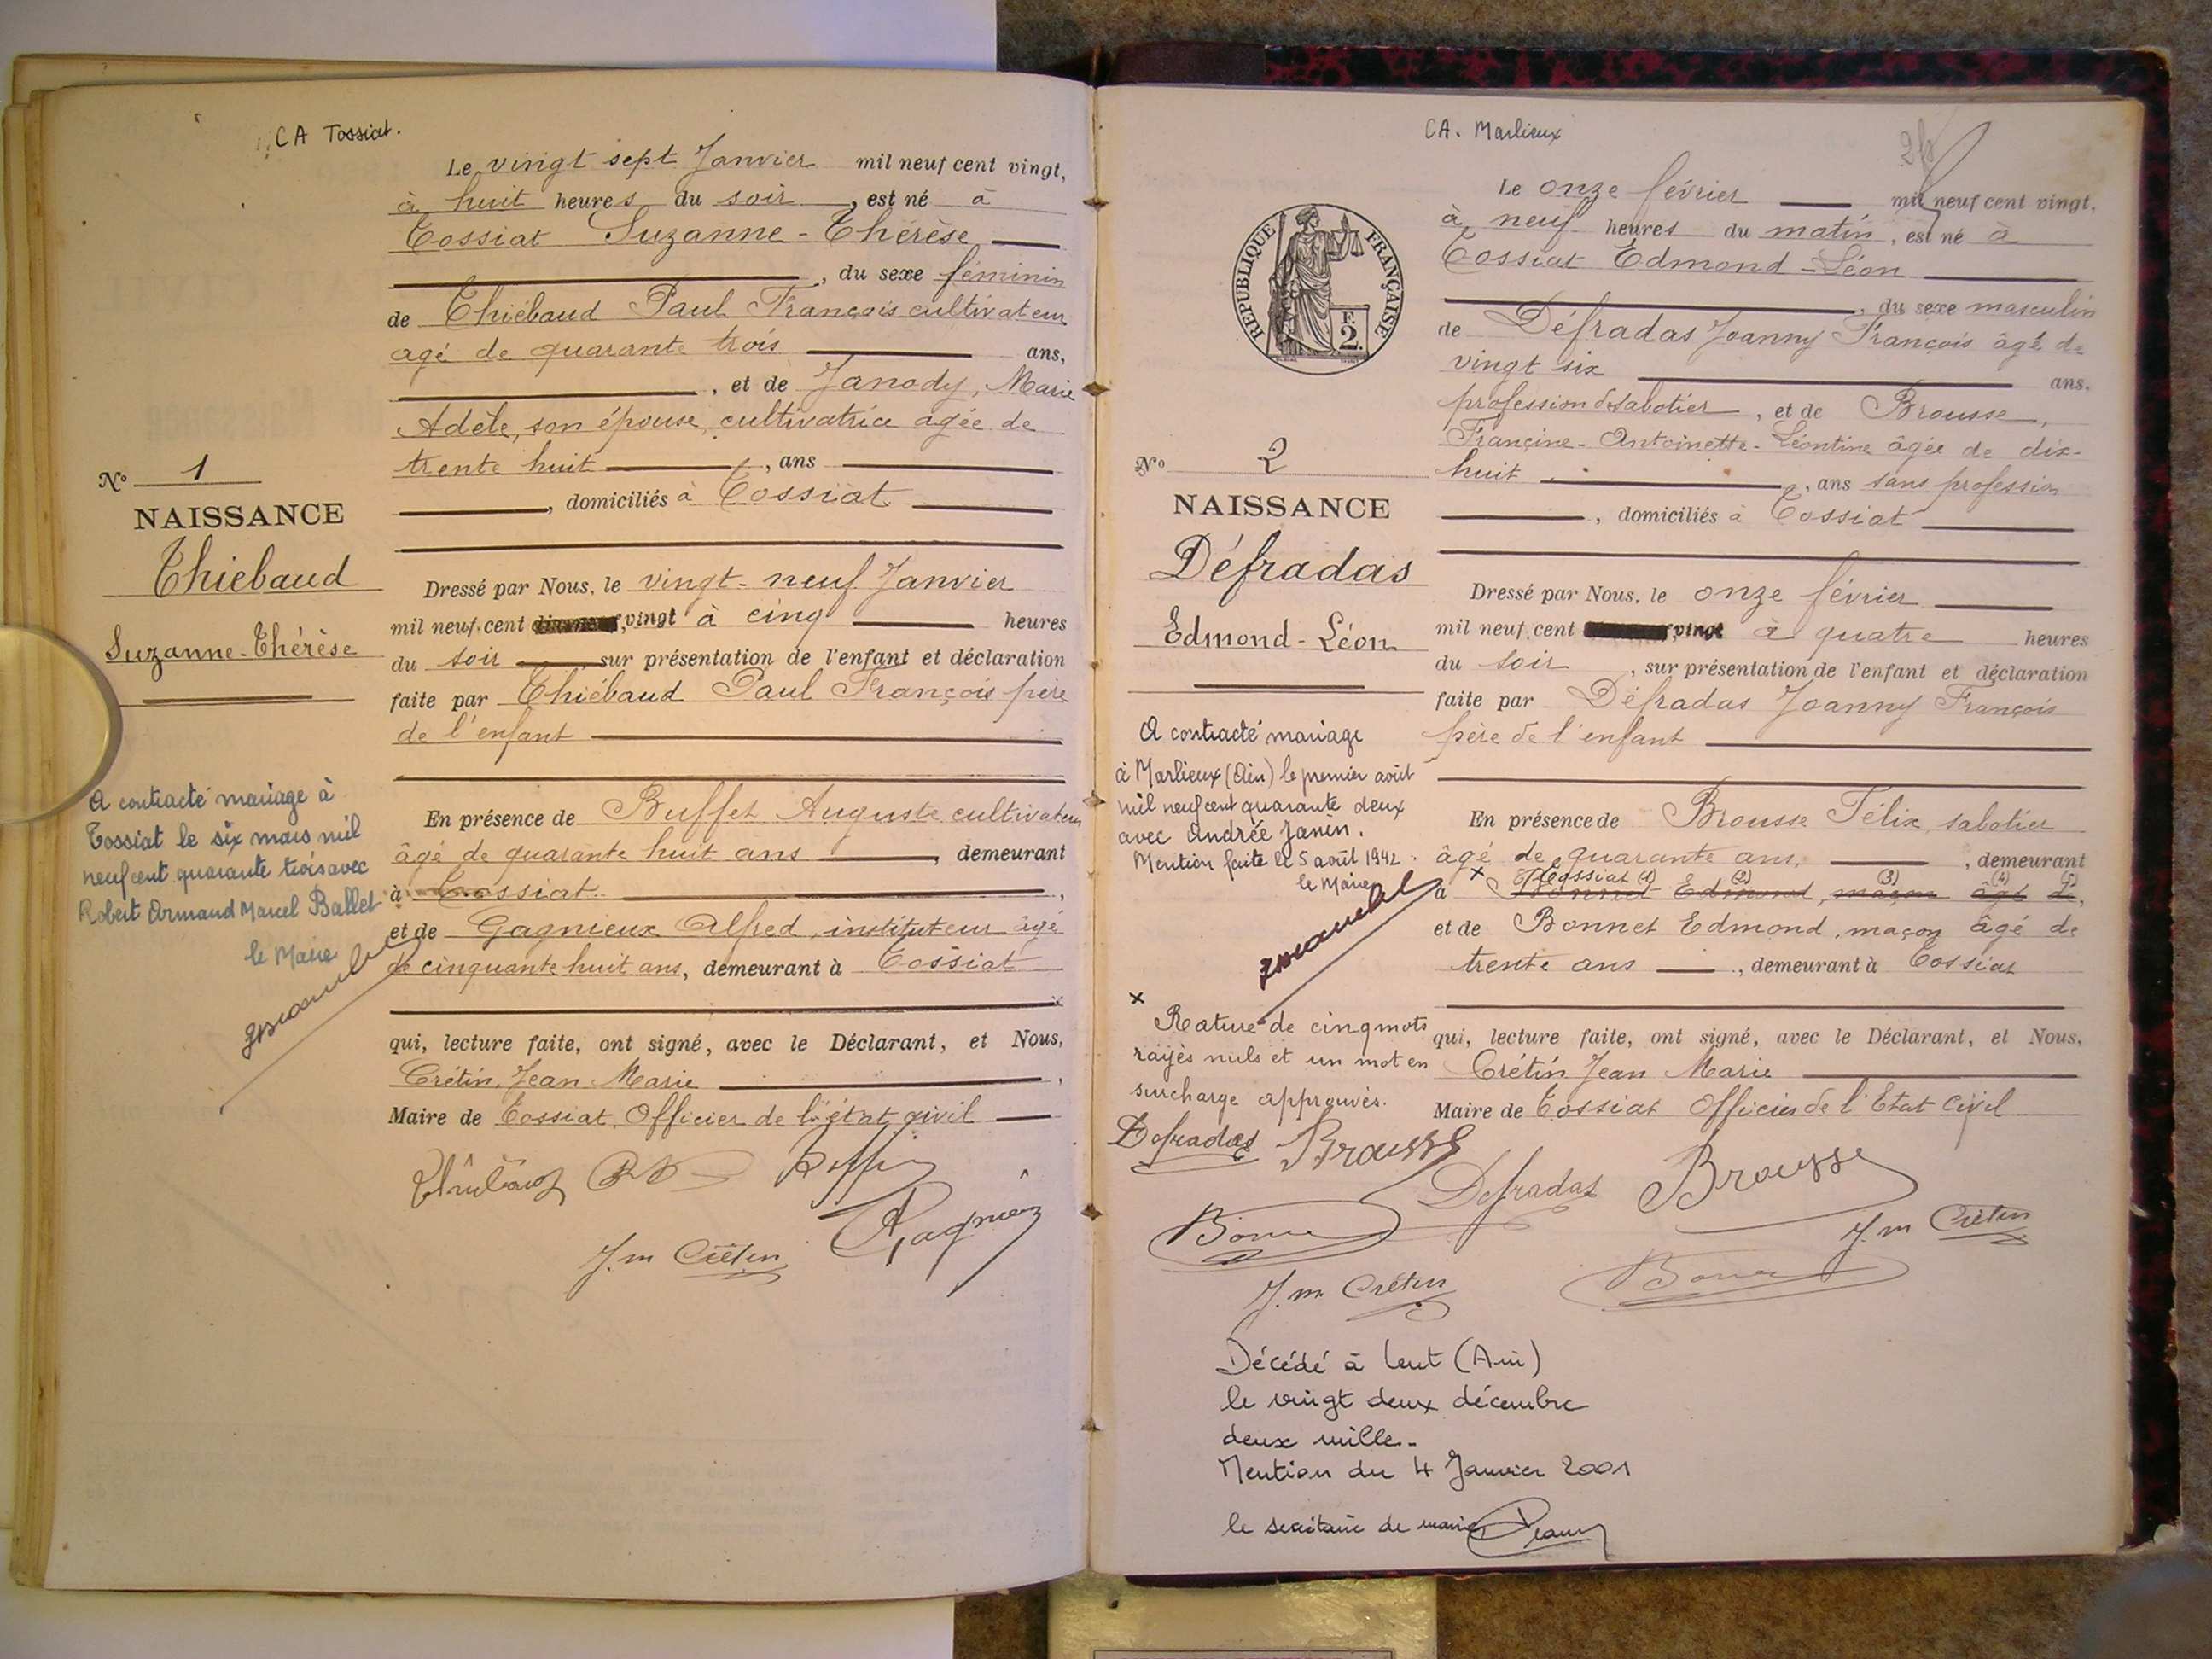 CA Tossiat.
Le vingt sept Janvier mil neuf cent vingt,
à huit heures du soir, est né à
Tossiat Suzanne-Thérèse
, du sexe féminin
de Thiébaud Paul François cultivateur
agé de quarante trois ans,
, et de Janody, Marie
Adèle, son épouse, cultivatrice agée de
trente huit, ans
, domiciliés à Tossiat
N° 1
NAISSANCE
Thiébaud
Suzanne-Thérèse
Dressé par Nous, le vingt-neuf Janvier
mil neuf cent vingt à cinq heures
du soir, sur présentation de l'enfant et déclaration
faite par Thiébaud Paul François père
de l'enfant
A contracté mariage à
Tossiat le six mars mil
neuf cent quarante trois avec
Robert Armand Marcel Ballet
le Maire
En présence de Buffet Auguste cultivateur
âgé de quarante huit ans, demeurant
à Tossiat,
et de Gagnieux Alfred, instituteur âgé
de cinquante huit ans, demeurant à Tossiat
qui, lecture faite, ont signé, avec le Déclarant, et Nous,
Crétin, Jean Marie,
Maire de Tossiat, Officier de l'état civil
J. m Crétin
CA. Marlieux
Le onze février mil neuf cent vingt,
à neuf heures du matin, est né à
Tossiat Edmond-Léon
, du sexe masculin
de Défradas Joanny François âgé de
vingt six ans,
profession de sabotier, et de Brousse,
Françine-Antoinette-Léontine âgée de dix-
huit, ans sans profession
, domiciliés à Tossiat
RÉPUBLIQUE FRANÇAISE
F.
2.
N° 2
NAISSANCE
Défradas
Edmond-Léon
Dressé par Nous, le onze février
mil neuf cent vingt à quatre heures
du soir, sur présentation de l'enfant et déclaration
faite par Défradas Joanny François
père de l'enfant
A contracté mariage
à Marlieux (Ain) le premier août
mil neuf cent quarante deux
avec Andrée Janin.
Mention faite le 5 août 1942.
le Maire
En présence de Brousse Félix, sabotier
âgé de quarante ans, , demeurant
à × Tossiat (1) Bonnet Edmond (2), maçon (3) âgé (4) de (5),
et de Bonnet Edmond, maçon âgé de
trente ans, demeurant à Tossiat
×
Rature de cinq mots
rayés nuls et un mot en
surcharge approuvés.
qui, lecture faite, ont signé, avec le Déclarant, et Nous,
Crétin Jean Marie
Maire de Tossiat Officier de l'Etat Civil
Defradas Brousse
Defradas Brousse
J. m Crétin
J. m Crétin
Décédé à Lent (Ain)
le vingt deux décembre
deux mille.
Mention du 4 Janvier 2001
le secrétaire de mairie